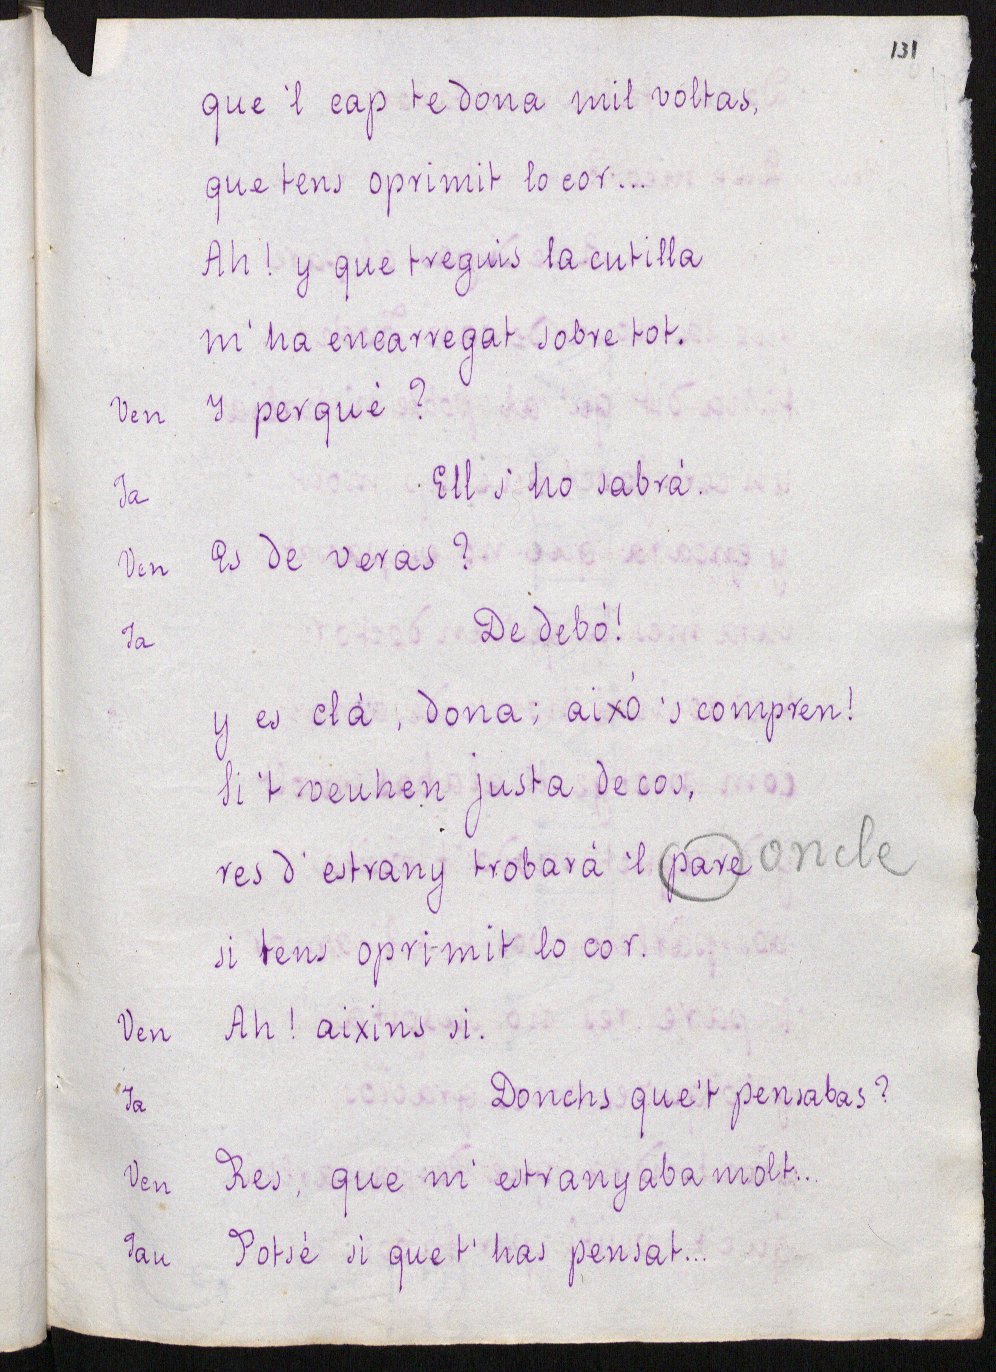 131
que 'l cap te dona mil voltas,
que tens oprimit lo cor...
Ah! y que treguis la cutilla
m' ha encarregat sobre tot.
Ven Y perquè?
Ja Ell s' ho sabrá.
Ven Es de veras?
Ja De debó!
y es clá, dona; aixó 's compren!
Si 't veuhen justa de cos,
res d' estrany trobará 'l pare oncle
si tens oprimit lo cor.
Ven Ah! aixins si.
Ja Donchs que't pensabas?
Ven Res, que m' estranyaba molt...
Jau Potsé si que t' has pensat...